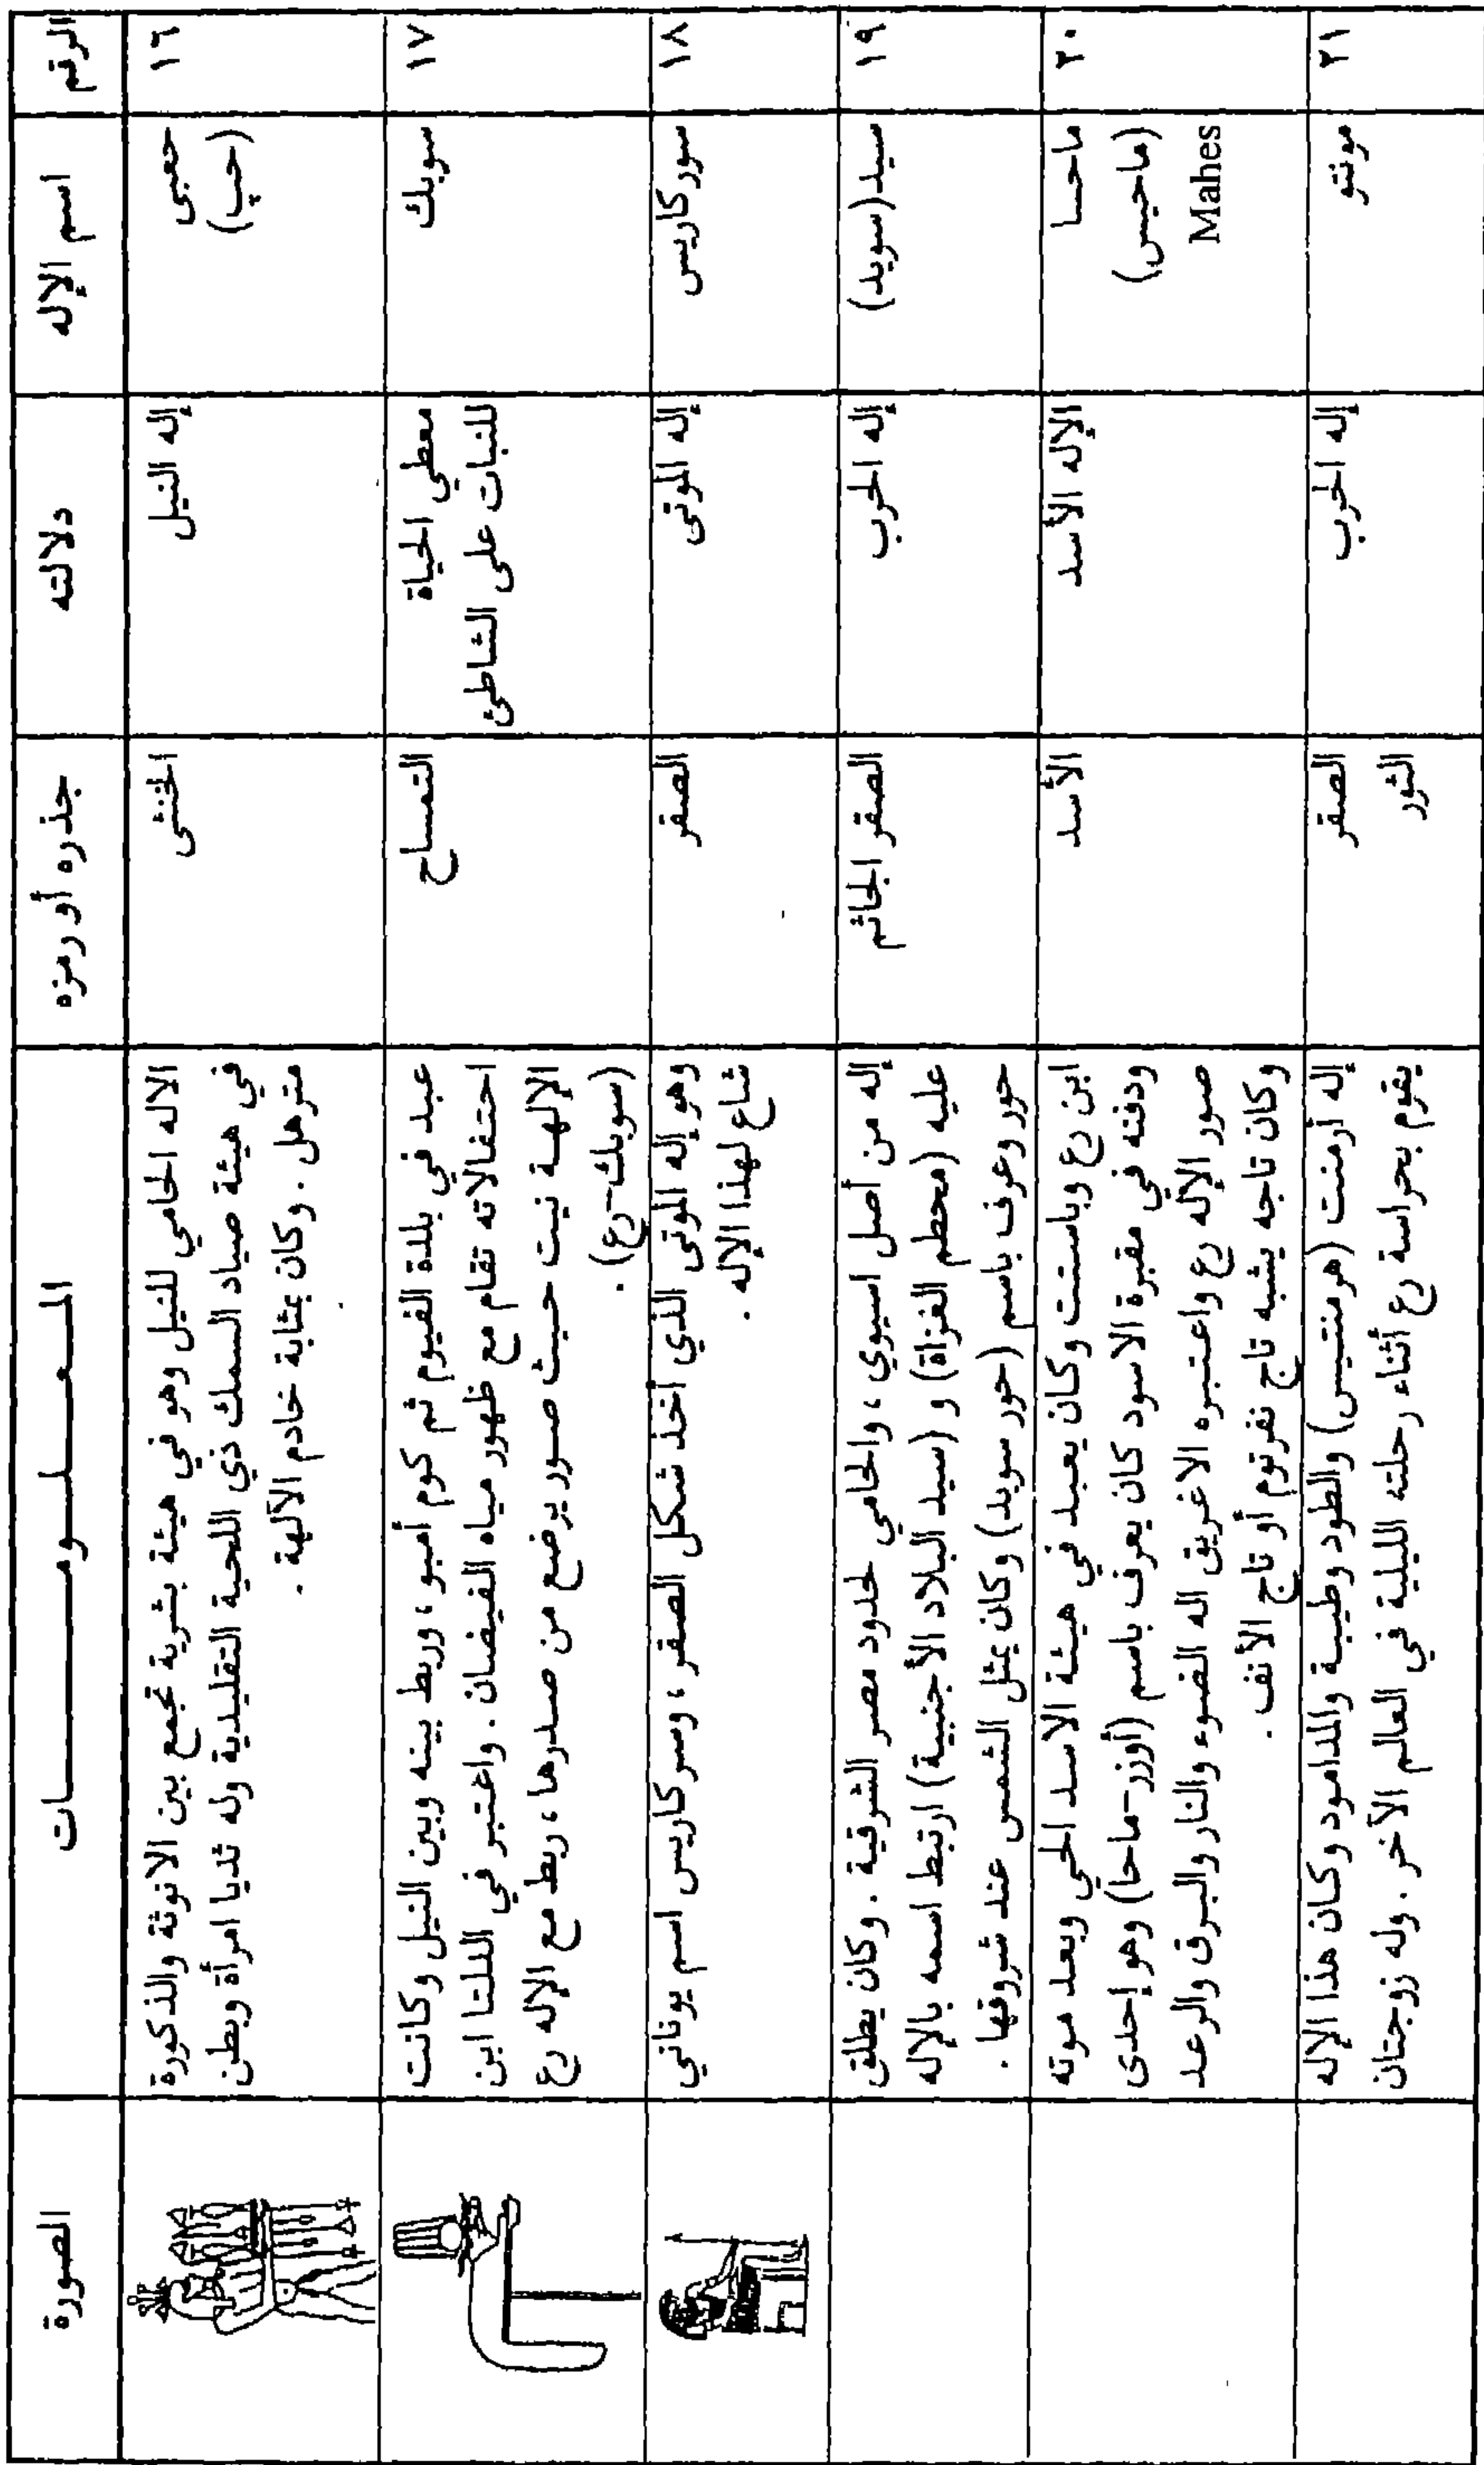 الرقم
اسم الإله
دلالته
جذره أو رمزه
المعلومات
الصورة
١٦
حعبى
(حپ)
إله النيل
الخنثى
الاله الحامي للنيل وهو في هيئة بشرية تجمع بين الانوثة والذكورة
في هيئة صياد السمك ذي اللحية التقليدية وله ثديا امرأة وبطن
مترهل . وكان بمثابة خادم الآلهة .
١٧
سوبك
معطي الحياة
للنبات على الشاطئ
التمساح
عبد في بلدة الفيوم ثم كوم أمبو ، وربط بينه وبين النيل وكانت
احتفالاته تقام مع ظهور مياه الفيضان . واعتبر في الدلتا ابن
الإلهة نيت حيث صور يرضع من صدرها ، ربط مع الإله رع
(سوبك-رع) .
١٨
سوركاريس
إله الموتى
الصقر
وهو إله الموتى الذي أخذ شكل الصقر ، وسركاريس اسم يوناني
شاع لهذا الإله .
١٩
سيد(سويد)
إله الحرب
الصقر الجاثم
إله من أصل اسيوي ، والحامي لحدود مصر الشرقية . وكان يطلق
عليه (محطم الغزاة) و (سيد البلاد الأجنبية) ارتبط اسمه بالإله
حور وعرف باسم (حور سويد) وكان يمثل الشمس عند شروقها .
٢٠
ماحسا
(ماحيس)
Mahes
الإله الأسد
الأسد
ابن رع وباستت وكان يعبد في هيئة الاسد الحي وبعد موته
ودفنه في مقبرة الاسود كان يعرف باسم (أوزر-ماحا) وهو إحدى
صور الإله رع واعتبره الاغريق اله الضوء والنار والبرق والرعد
وكان تاجه يشبه تاج نفرتوم أو تاج الأتف .
٢١
مونتو
إله الحرب
الصقر
الثور
إله أرمنت (هرمنتيس) والطود وطيبة والمدامود وكان هذا الإله
يقوم بحراسة رع أثناء رحلته الليلية في العالم الآخر . وله زوجتان